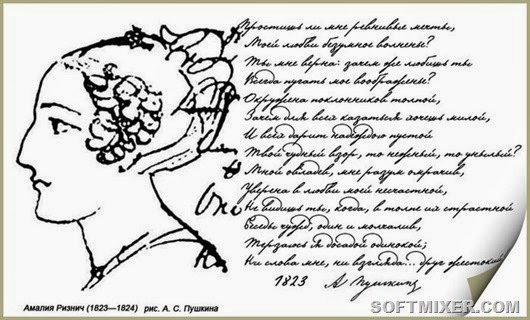 Простишь ли мне ревнивые мечты,
Моей любви безумное волненье?
Ты мне верна: зачем же любишь ты
Всегда пугать мое воображенье?
Окружена поклонников толпой,
Зачем для всех казаться хочешь милой,
И всех дарит надеждою пустой
Твой чудный взор, то нежный, то унылый?
Мной овладев, мне разум омрачив,
Уверена в любви моей несчастной,
Не видишь ты, когда, в толпе их страстной
Беседы чужд, один и молчалив,
Терзаюсь я досадой одинокой;
Ни слова мне, ни взгляда... друг жестокий!
1823 А Пушкинъ
Амалия Ризнич (1823—1824) рис. А. С. Пушкина
SOFTMIXER.COM